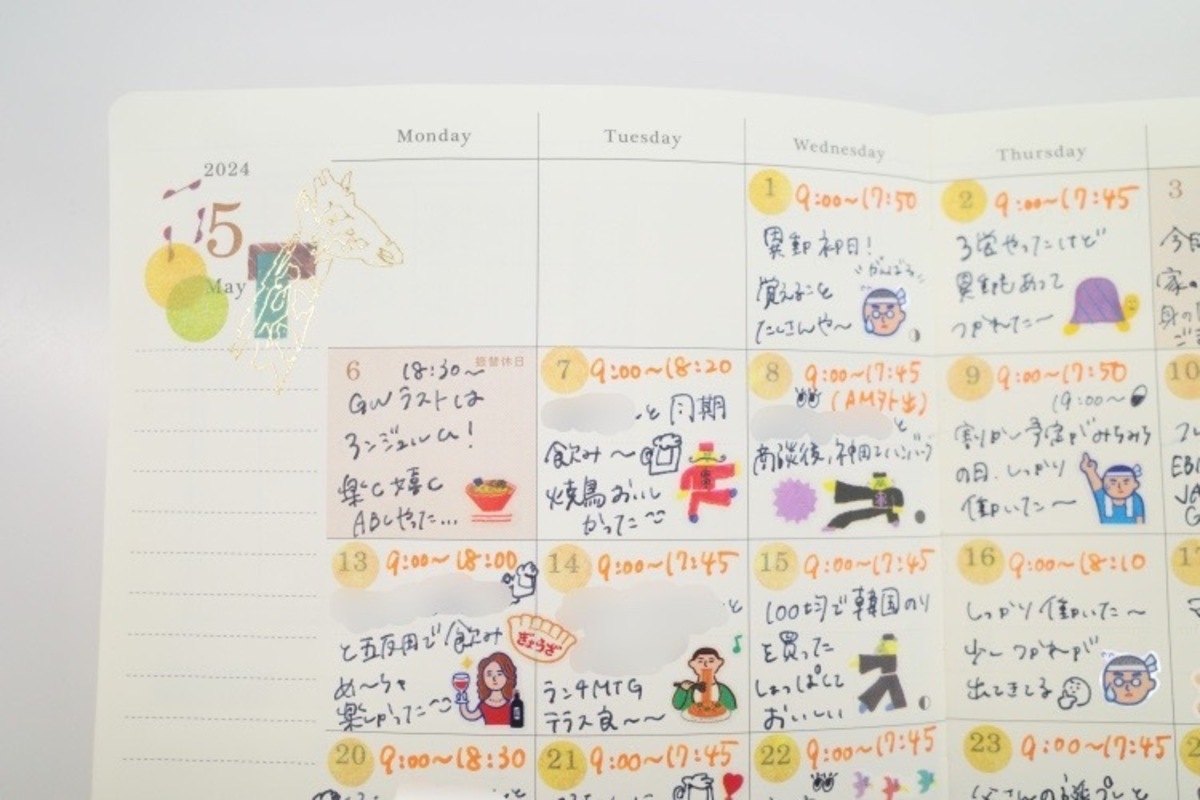 2024
5
May
Monday
Tuesday
Wednesday
Thursday
1
9:00~17:50
異動初日!
覚えること
たくさんや~
がんばろ
2
9:00~17:45
異動もあって
つかれた~
3
6
振替休日
18:30~
GWラストは
楽しく嬉しく
7
9:00~18:20
と同期
飲み~
焼鳥おいし
かった
8
9:00~17:45
と
商談後、神田でハンバーグ
9
9:00~17:50
19:00~
割りかし予定がみちみち
の日。しっかり
働いた~
10
13
9:00~18:00
と五反田で飲み
め~ちゃ
楽しかった~
ぎょうざ
14
9:00~17:45
と
ランチMTG
テラス良~~
15
9:00~17:45
100均で韓国のり
を買った
しょっぱくて
おいしい
16
9:00~18:10
しっかり働いた~
少しつかれが
出てきてる
20
9:00~18:30
21
9:00~17:45
22
9:00~17:45
23
9:00~17:45